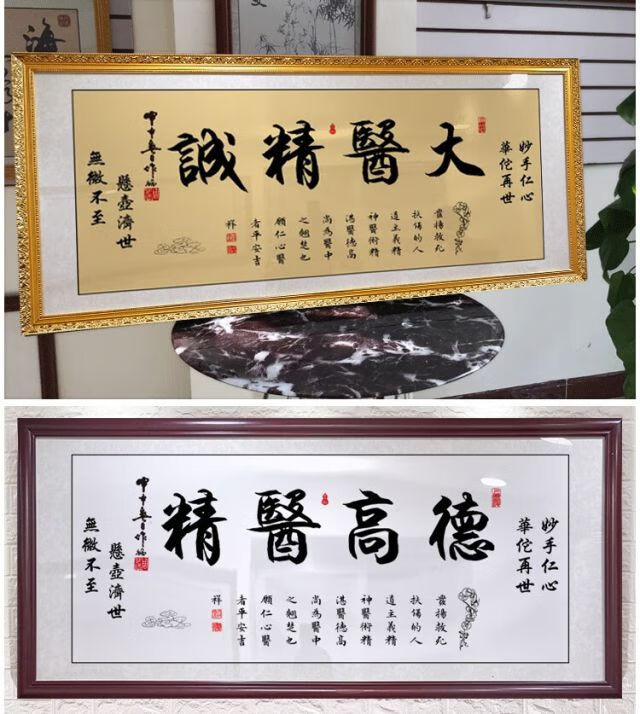 妙手仁心
華佗再世
大醫精誠
發揚救死
扶傷的人
道主義精
神醫術精
湛醫德高
尚為醫中
之翹楚也
願仁心醫
者平安吉
祥
懸壺濟世
無微不至
妙手仁心
華佗再世
德高醫精
發揚救死
扶傷的人
道主義精
神醫術精
湛醫德高
尚為醫中
之翹楚也
願仁心醫
者平安吉
祥
懸壺濟世
無微不至